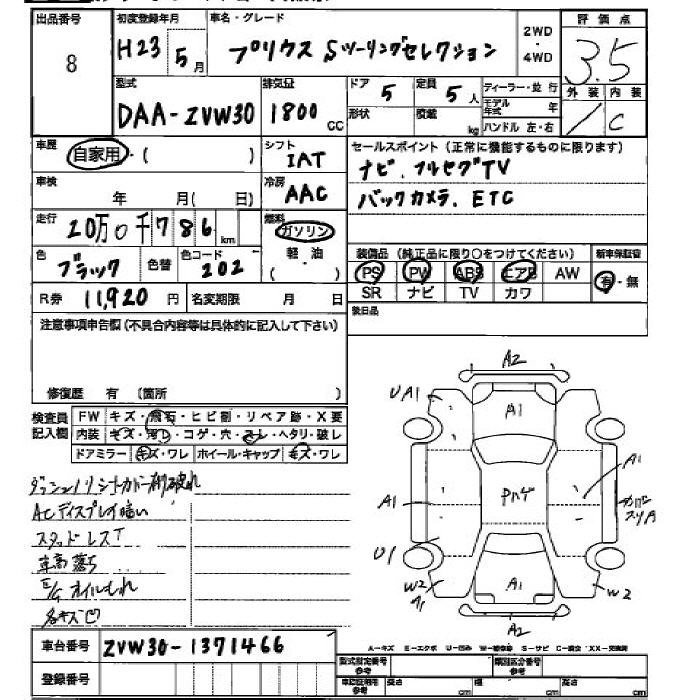 出品番号 初度登録年月 車名・グレード 2WD・4WD 評価点
8 H23 5月 プリウス Sツーリングセレクション 3.5
型式 排気量 ドア 定員 ディーラー・並行 外装 内装
DAA-ZVW30 1800CC 5 5人 モデル年式 年 C
形状 積載 kg ハンドル 左・右
車歴 自家用・( ) シフト IAT セールスポイント(正常に機能するものに限ります)
車検 年 月( 日) 冷房 AAC ナビ.フルセグTV
バックカメラ.ETC
走行 20万0千786km 燃料 ガソリン
軽・油
( )
色 ブラック 色替 色コード 202
装備品(純正品に限り○をつけてください) 新車保証書
PS PW ABS エアB AW 有・無
SR ナビ TV カワ
R券 11,920円 名変期限 月 日
後日品
注意事項申告欄(不具合内容等は具体的に記入して下さい)
修復歴 有 (箇所 )
検査員記入欄 FW キズ・飛石・ヒビ割・リペア跡・X要
内装 キズ・汚れ・コゲ・穴・スレ・ヘタリ・破レ
ドアミラー キズ・ワレ ホイール・キャップ キズ・ワレ
ACディスプレイ暗い
スタッドレスT
車高落ち
E/Gオイルもれ
A2
UA1
A1
A1
A1
Pハゲ
U1
W2
A1
W2
A2
A-キズ E-エクボ U-凹み W-補修跡 S-サビ C-腐食 XX-交換済
車台番号 ZVW30-1371466
登録番号
型式指定番号 参考 類別区分番号 参考
車検証明用 参考 長さ cm 幅 cm 高さ cm